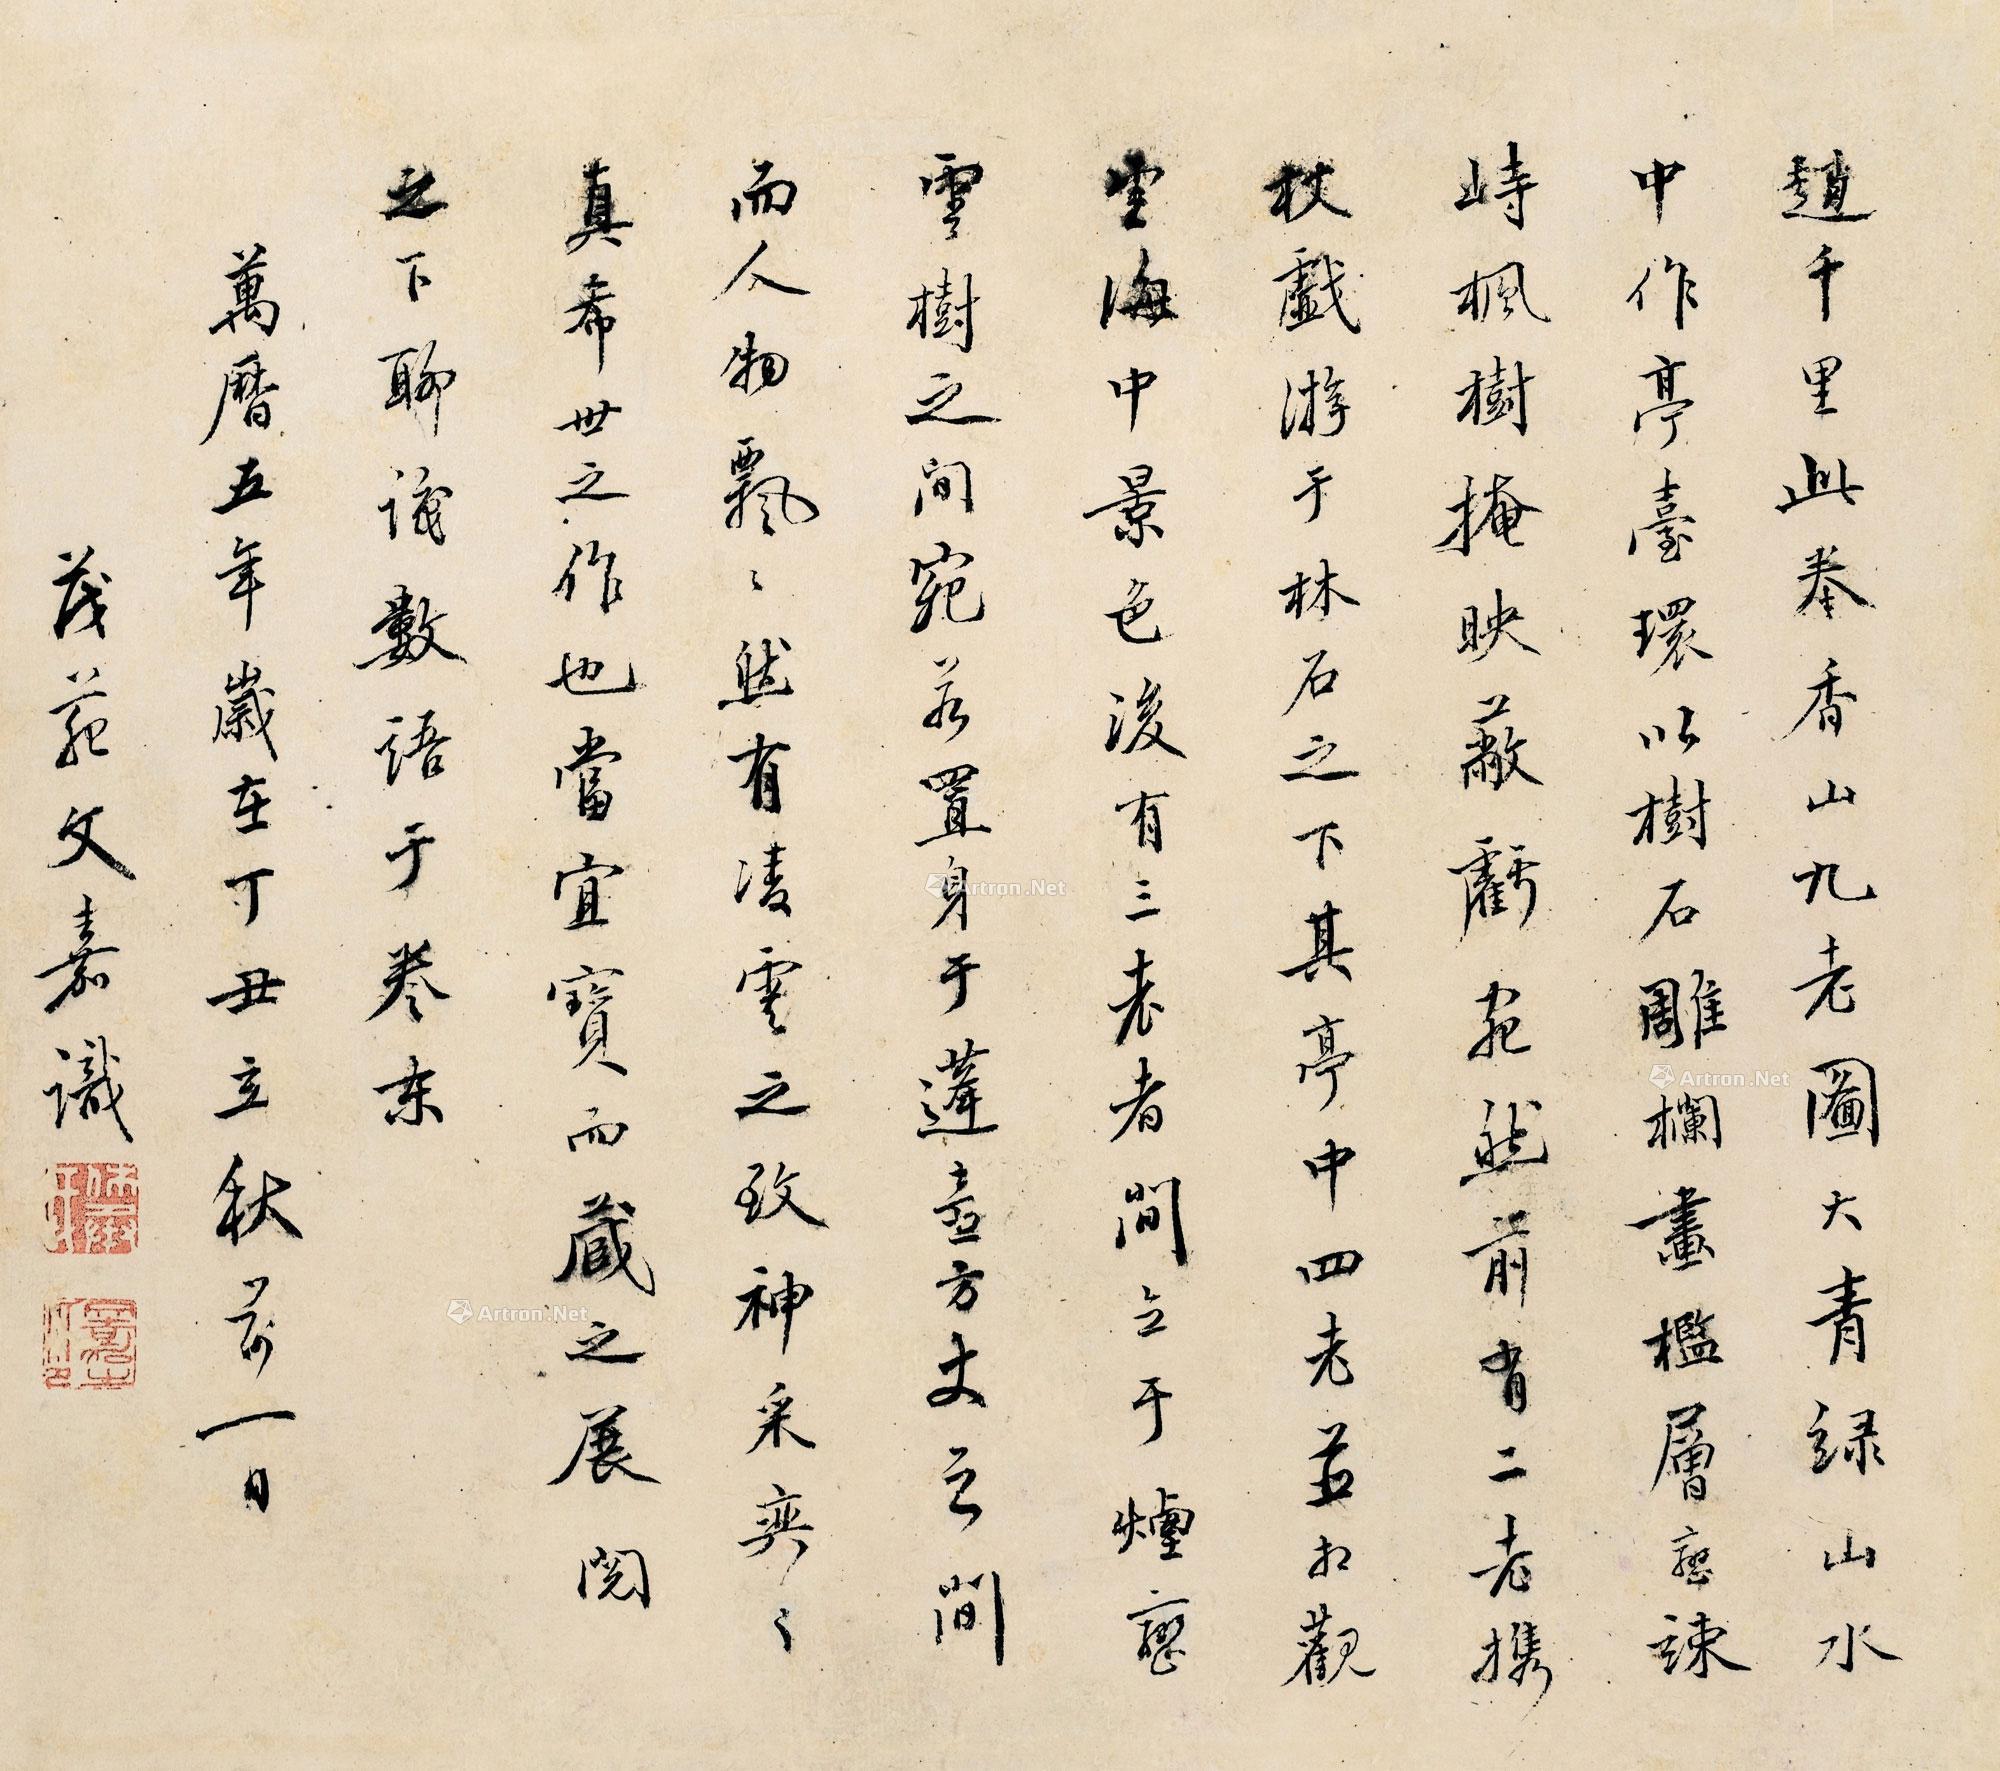 趙千里此卷香山九老圖大青緑山水
中作亭臺環以樹石雕欄畫檻層巒竦
峙楓樹掩映蔽虧宛然前有二老携
杖戲游于林石之下其亭中四老並相觀
雲海中景色後有三老者間立于煙巒
雲樹之间宛若置身于蓬壺方丈之間
而人物飄〻然有凌雲之致神采奕〻
真希世之作也當宜寶而藏之展閱
之下聊識數語于卷末
萬曆五年歲在丁丑立秋前一日
茂苑文嘉識
Artron.Net
Artron.Net
Artron.Net